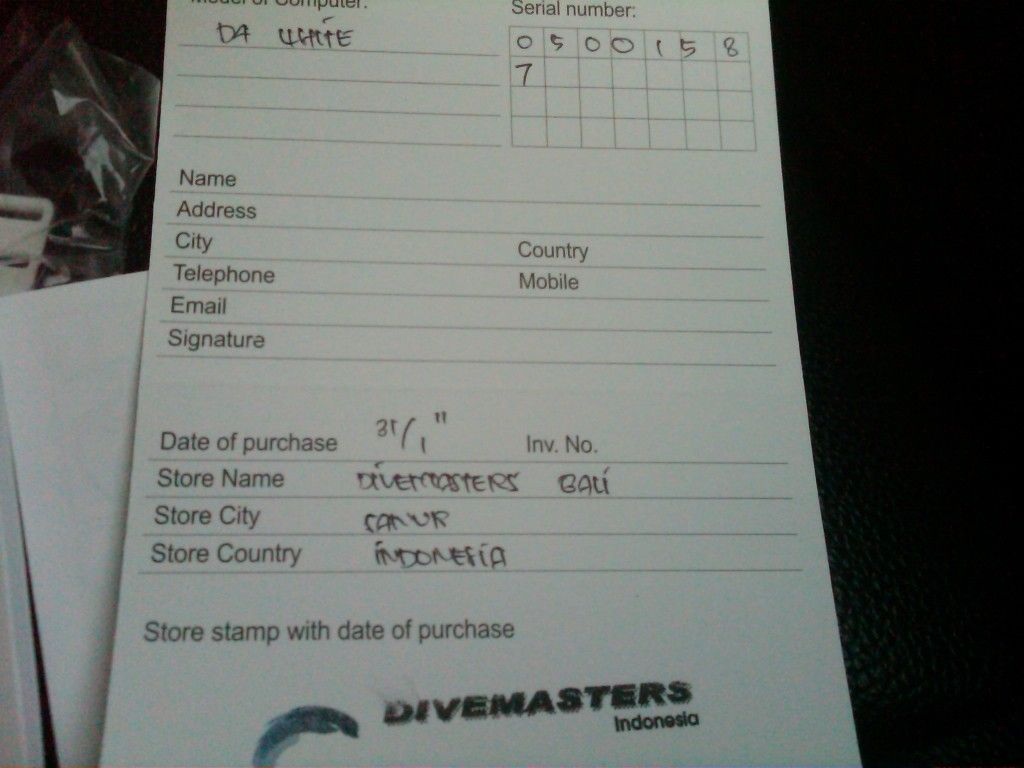 Model of Computer:
Serial number:
D4 WHITE
0 5 0 0 1 5 8
7
Name
Address
City Country
Telephone Mobile
Email
Signature
Date of purchase 31/1 11 Inv. No.
Store Name DIVEMASTERS BALI
Store City SANUR
Store Country INDONESIA
Store stamp with date of purchase
DIVEMASTERS
Indonesia